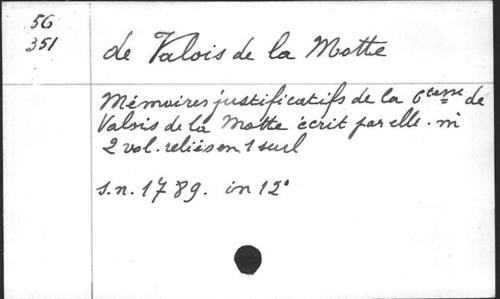 56
351
de Valois de la Motte
Mémoires justificatifs de la Ctesse de
Valois de la Motte écrit par elle. m̂
2 vol. reliés en 1 seul
s.n. 1789. in 12°